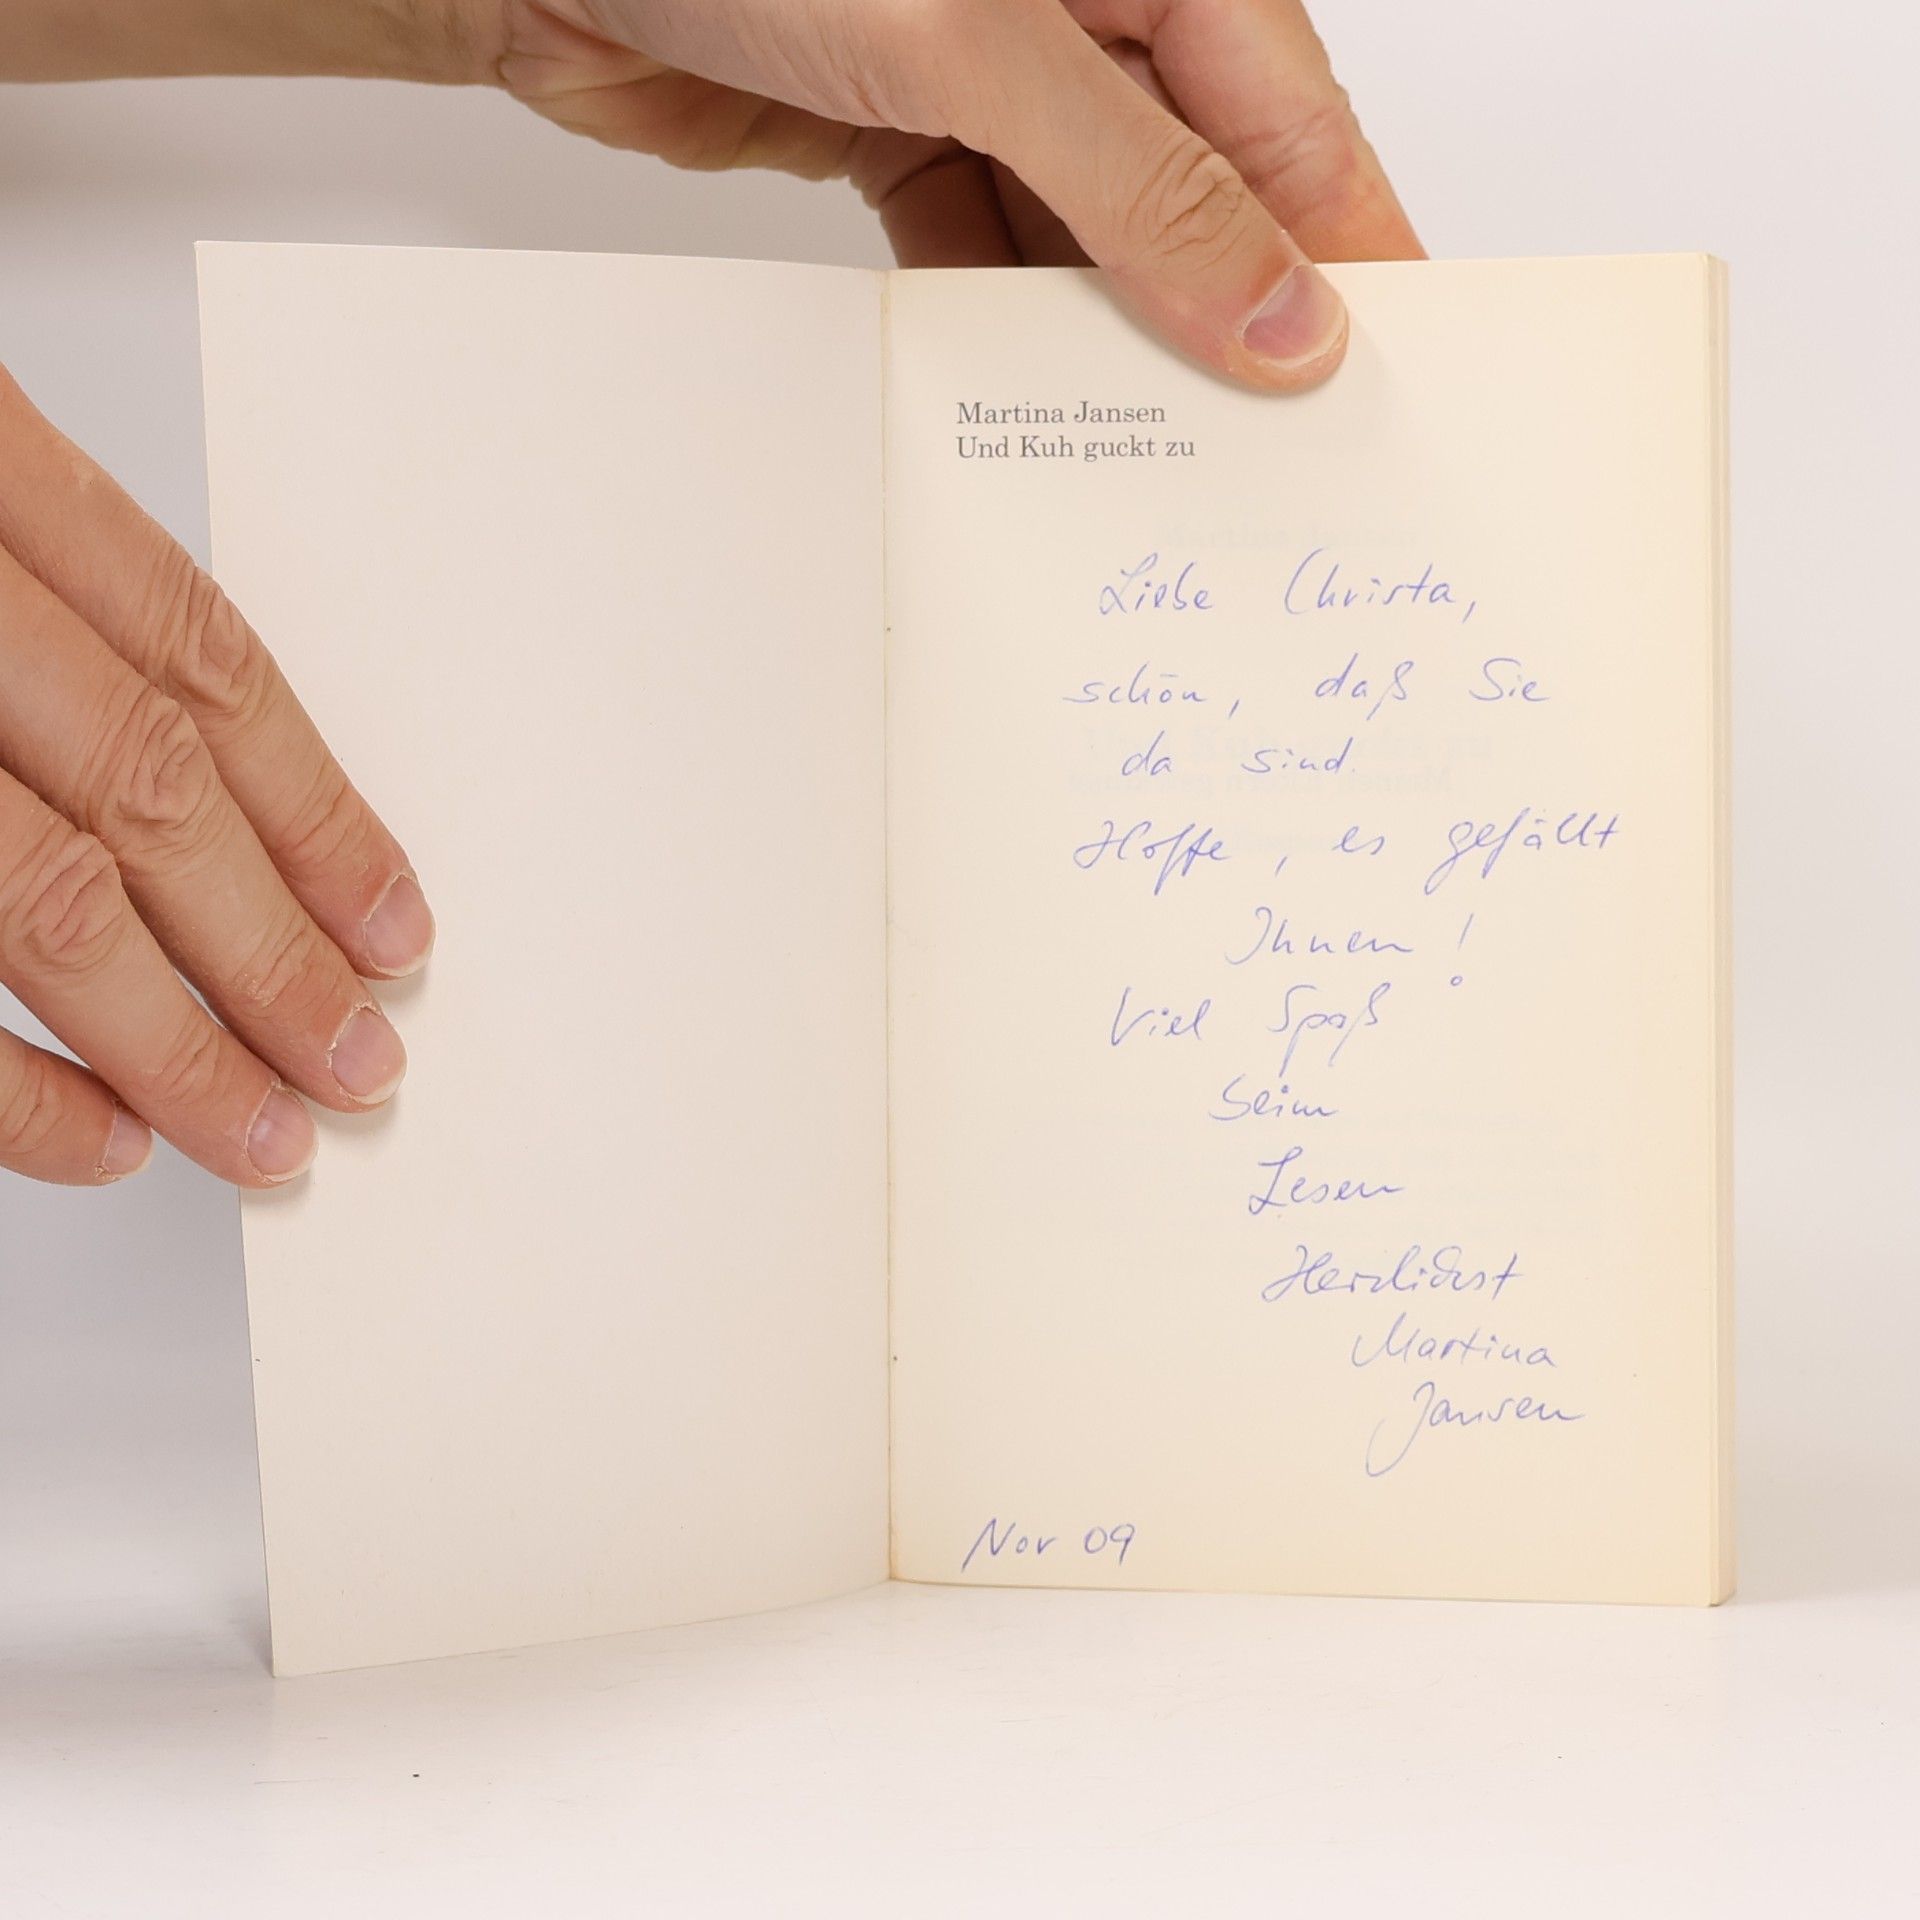 Martina Jansen
Und Kuh guckt zu
Liebe Christa,
schön, daß Sie
da sind.
Hoffe, es gefällt
Ihnen!
Viel Spaß
beim
Lesen
Herzlichst
Martina
Jansen
Nov 09